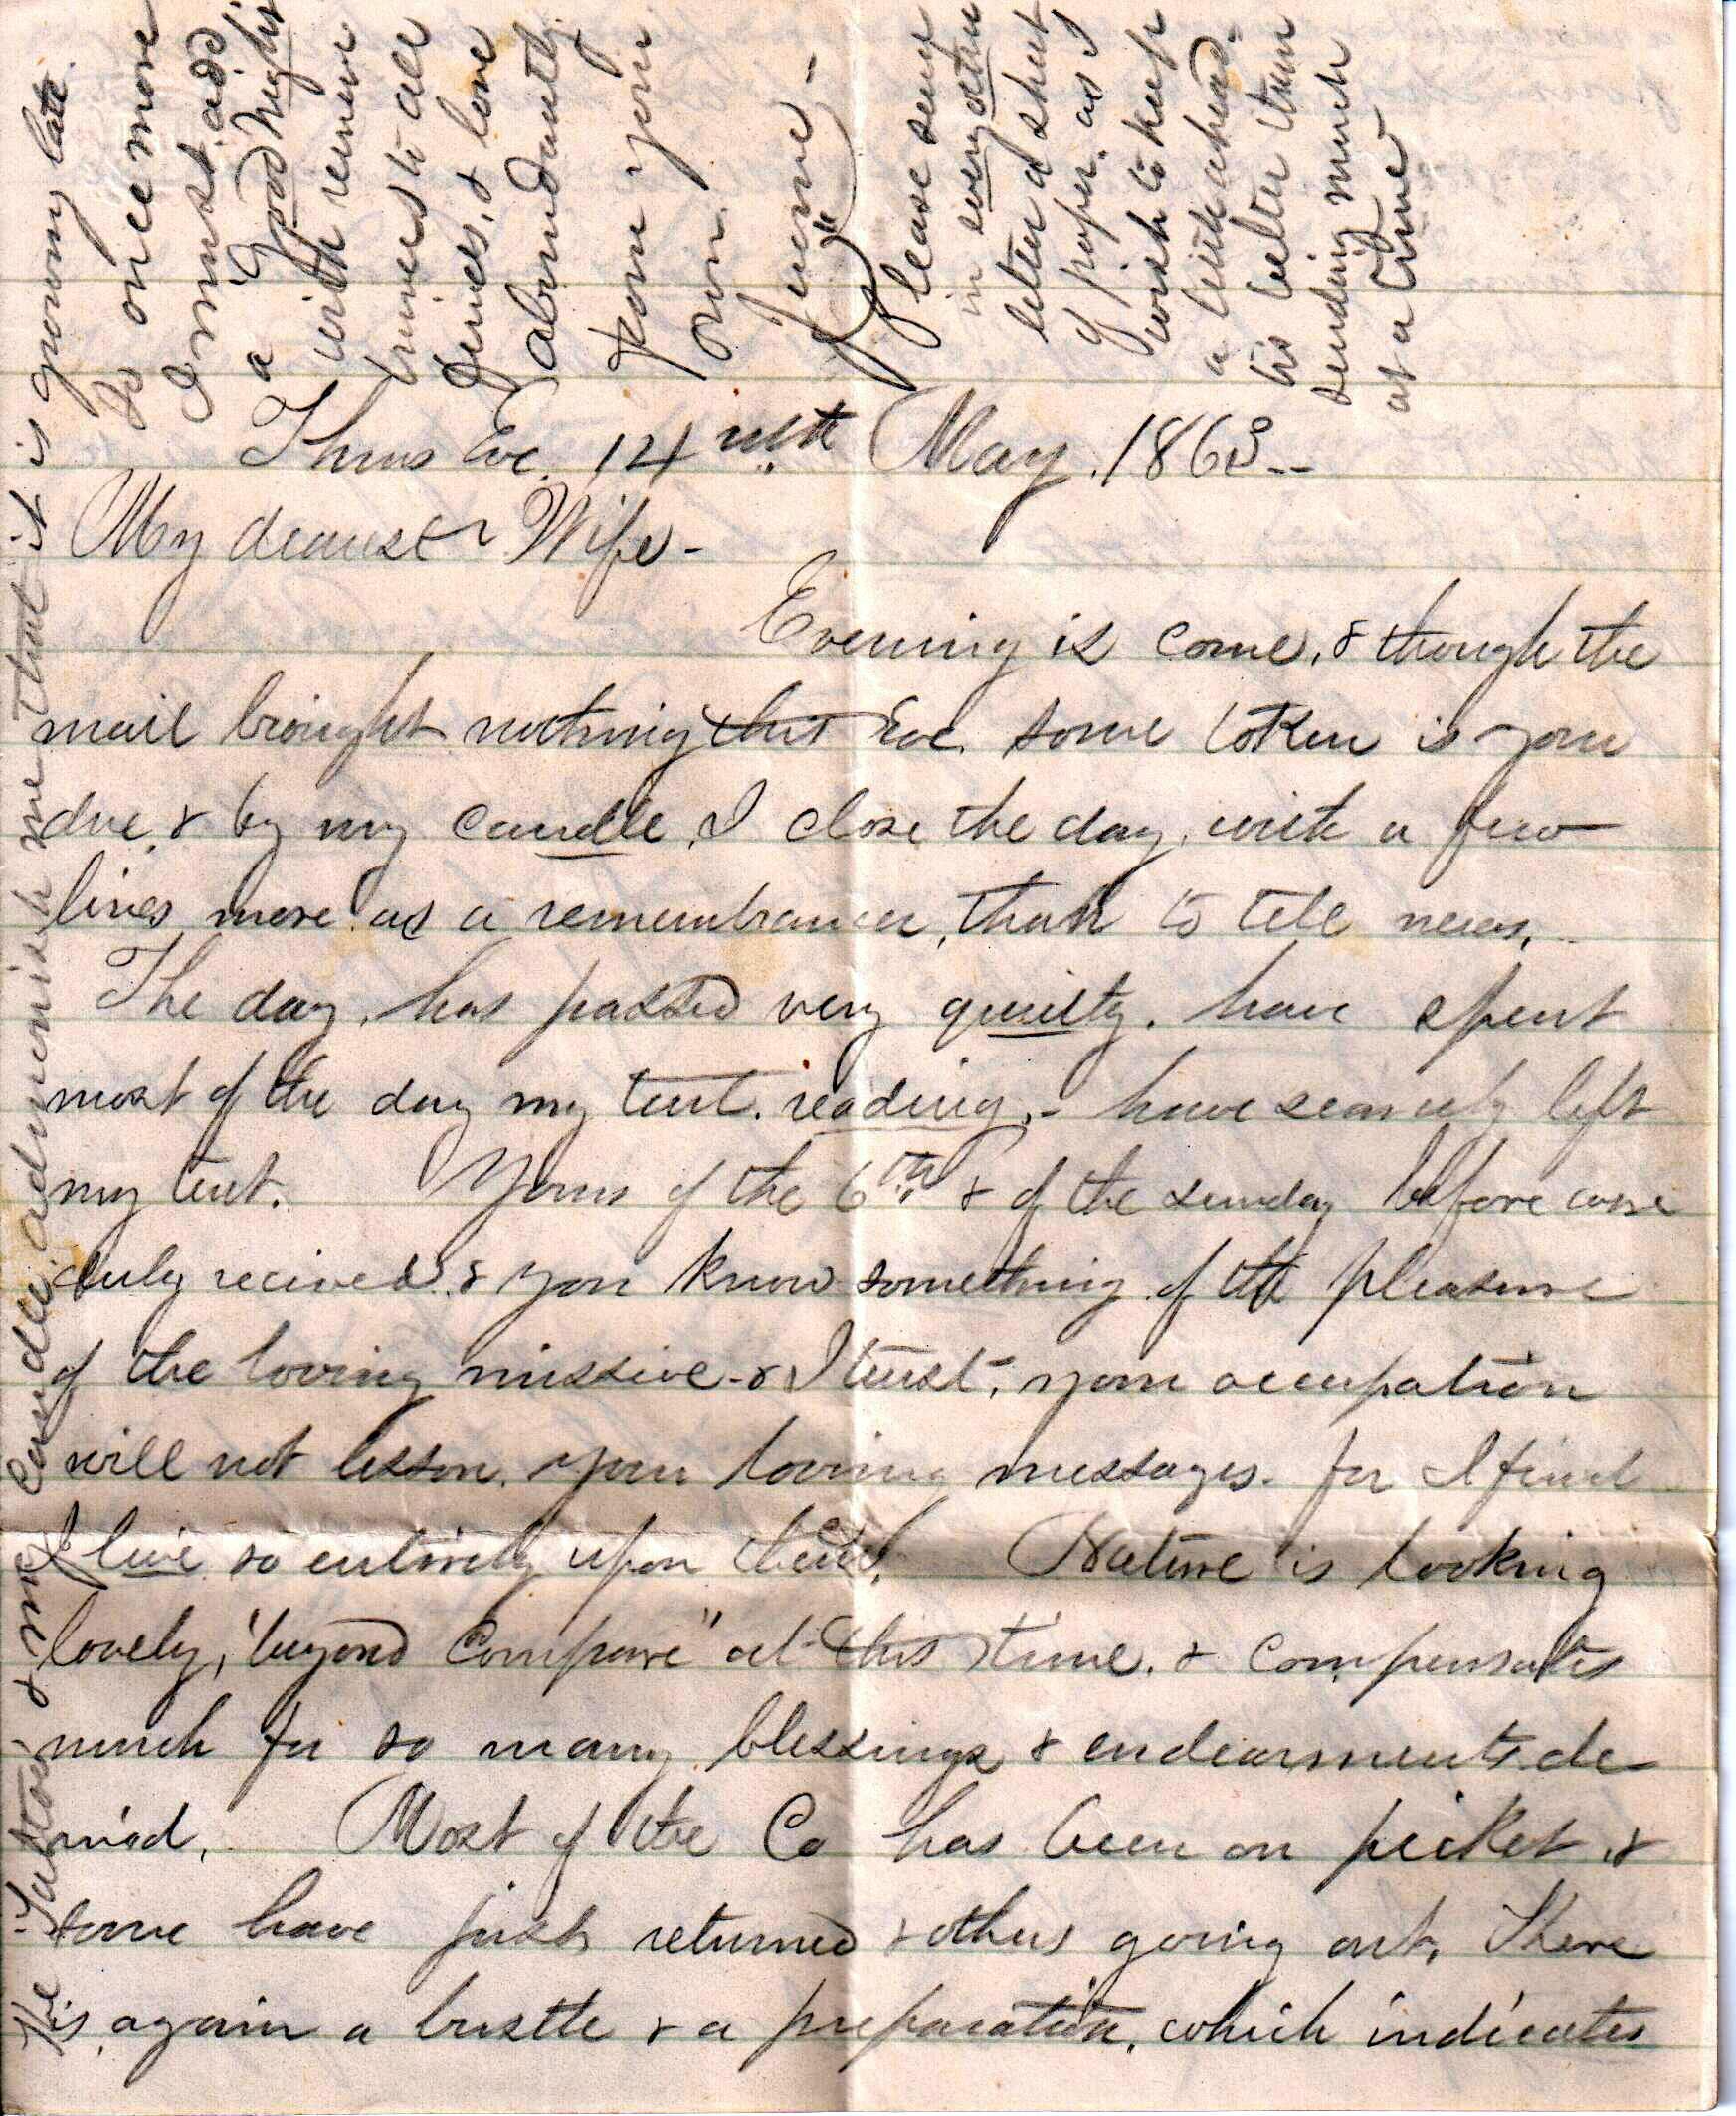 Thurs Eve. 14th May. 1863--
My dearest Wife-
Evening is come, & though the
mail brought nothing this Eve. some token is your
due, & by my candle, I close the day, with a few
lines more as a remembrance, than to tell news.
The day, has passed very quietly. have spent
most of the day my tent. reading,- have scarcely left
my tent. Yours of the 6th. & of the sunday before came
duly recived. & you know something of the pleasure
of the loving missive- & I trust, your occupation
will not lesson. your loving messages. for I find
I live so entirely upon them. Nature is looking
lovely, "beyond Compare" at this time. & compensates
much for so many blessings & endearments de
nied. Most of the Co has been on picket, &
some have just returned & others going out, There
is, again a bustle & a preparation, which indicates
The & my Candle. admonish me that it is growing late.
So once more
I must add
a Good Night
with remem
brances to all
friends, & love
abundantly
from your
own
Please send
in every other
letter a sheet
of paper. as I
wish to keep
a little ahead.-
tis better than
sending much
at a time